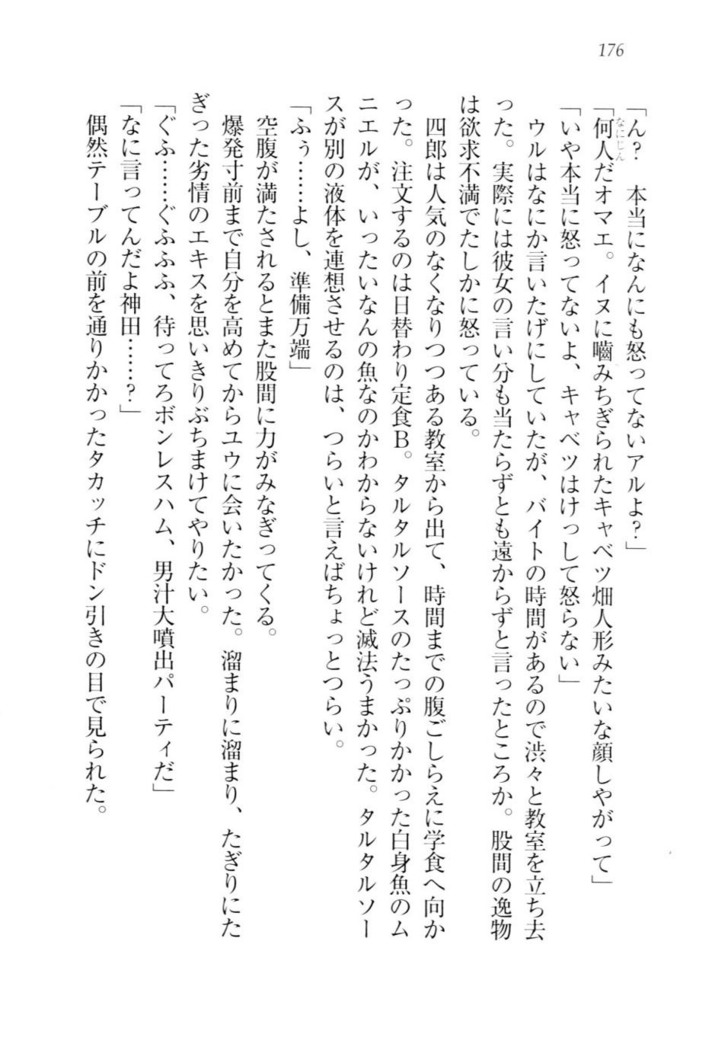 176
「ん？　本当になんにも怒ってないアルよ？」
「何人だオマエ。イヌに嚙みちぎられたキャベツ畑人形みたいな顔しやがって」
なにじん
「いや本当に怒ってないよ、キャベツはけっして怒らない」
　ウルはなにか言いたげにしていたが、バイトの時間があるので渋々と教室を立ち去
った。実際には彼女の言い分も当たらずとも遠からずと言ったところか。股間の逸物
は欲求不満でたしかに怒っている。
　四郎は人気のなくなりつつある教室から出て、時間までの腹ごしらえに学食へ向か
った。注文するのは日替わり定食Ｂ。タルタルソースのたっぷりかかった白身魚のム
ニエルが、いったいなんの魚なのかわからないけれど滅法うまかった。タルタルソー
スが別の液体を連想させるのは、つらいと言えばちょっとつらい。
「ふぅ……よし、準備万端」
　空腹が満たされるとまた股間に力がみなぎってくる。
　爆発寸前まで自分を高めてからユウに会いたかった。溜まりに溜まり、たぎりにた
ぎった劣情のエキスを思いきりぶちまけてやりたい。
「ぐふ……ぐふふふ、待ってろボンレスハム、男汁大噴出パーティだ」
「なに言ってんだよ神田……？」
　偶然テーブルの前を通りかかったタカッチにドン引きの目で見られた。